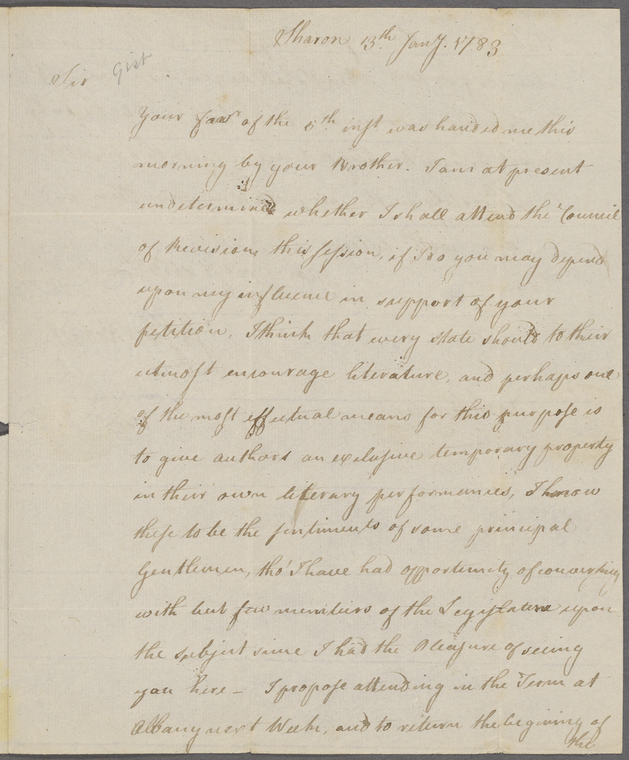 Sharon 13th Jany. 1783
Sir Gist
Your favr of the 6th inst was handed me this
morning by your Brother. I am at present
undetermined whether I shall attend the Council
of Revision this session, if I do you may depend
upon my influence in support of your
petition, I think that every state should to their
utmost encourage literature, and perhaps one
of the most effectual means for this purpose is
to give authors an exclusive temporary property
in their own literary performances, I know
these to be the sentiments of some principal
Gentlemen, tho' I have had opportunity of conversing
with but few members of the Legislature upon
the subject since I had the Pleasure of seeing
you here – I propose attending in the Term at
Albany next Week, and to return the begining of
the